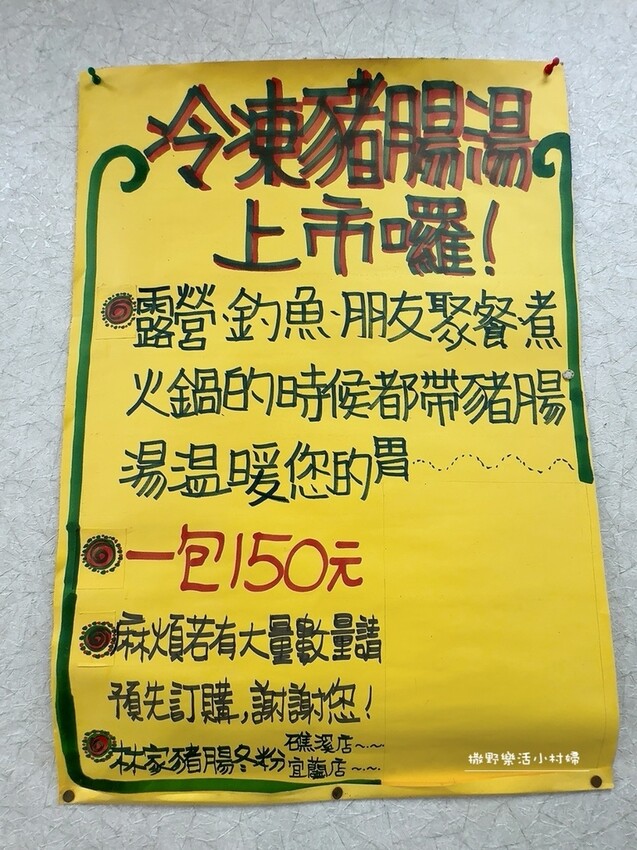 冷凍豬腸湯
上市囉!
露營、釣魚、朋友聚餐煮
火鍋的時候都帶豬腸
湯溫暖您的胃
一包150元
麻煩若有大量數量請
預先訂購,謝謝您!
林家豬腸冬粉 礁溪店~.~
宜蘭店~.~
撒野樂活小村婦